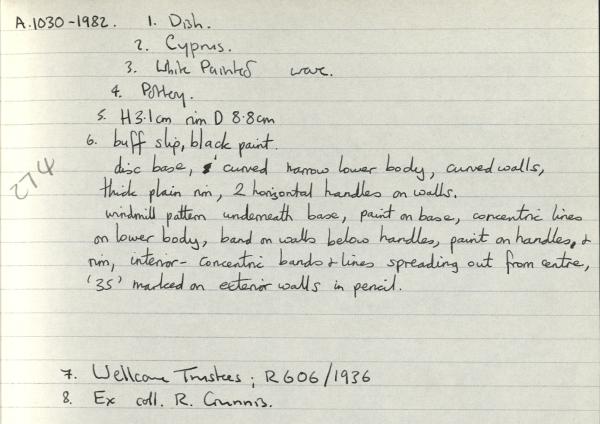 A.1030-1982. 1. Dish.
2. Cyprus.
3. White Painted ware.
4. Pottery.
5. H 3.1cm rim D 8.8cm
6. buff slip, black paint.
disc base, curved narrow lower body, curved walls,
274
thick plain rim, 2 horizontal handles on walls.
windmill pattern underneath base, paint on base, concentric lines
on lower body, band on walls below handles, paint on handles, &
rim, interior - concentric bands & lines spreading out from centre,
'35' marked on exterior walls in pencil.
7. Wellcome Trustees; R606/1936
8. Ex coll. R. Gunnis.